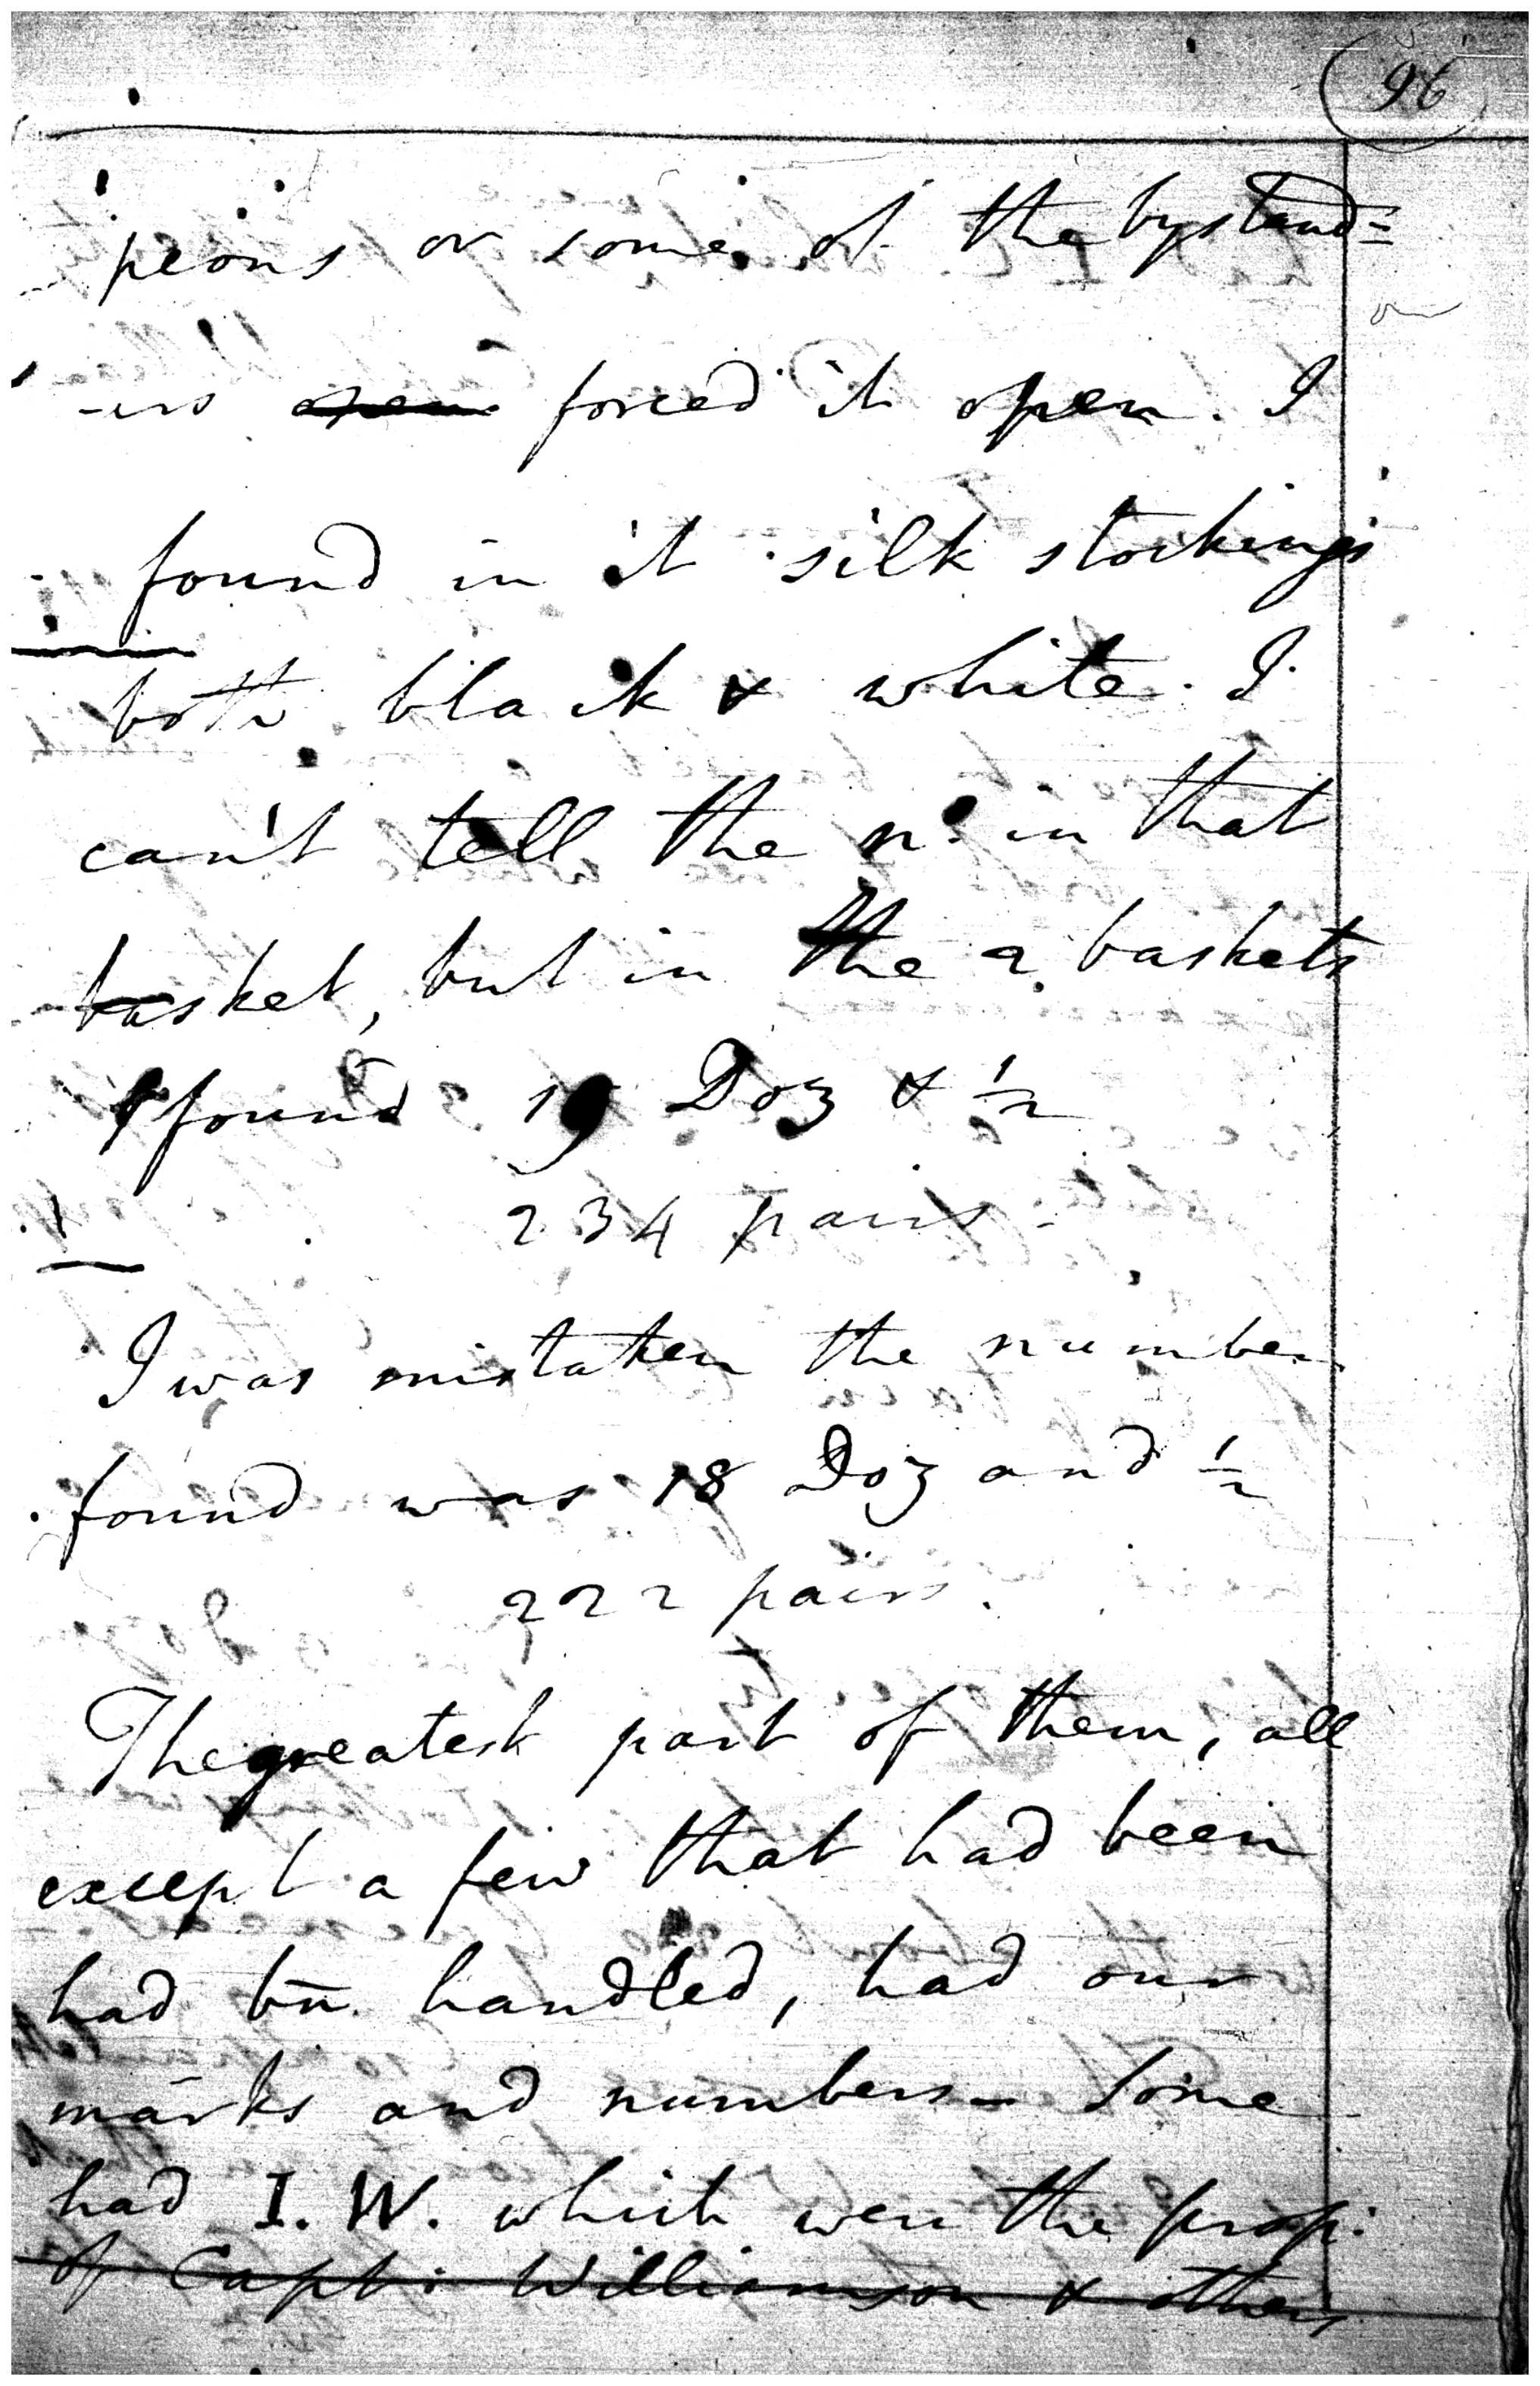 96
peons or some of the bystand=
-ers open forced it open. I
found in it silk stockings
both black & white. I
can't tell the no. in that
basket, but in the 2 baskets
I found 19 Doz & 1/2
234 pairs.
I was mistaken the number
found was 18 Doz and 1/2
222 pairs.
The greatest part of them, all
except a few that had been
had bn. handled, had our
marks and numbers - Some
had I. W. which were the prop:
of Capt: Williamson & others